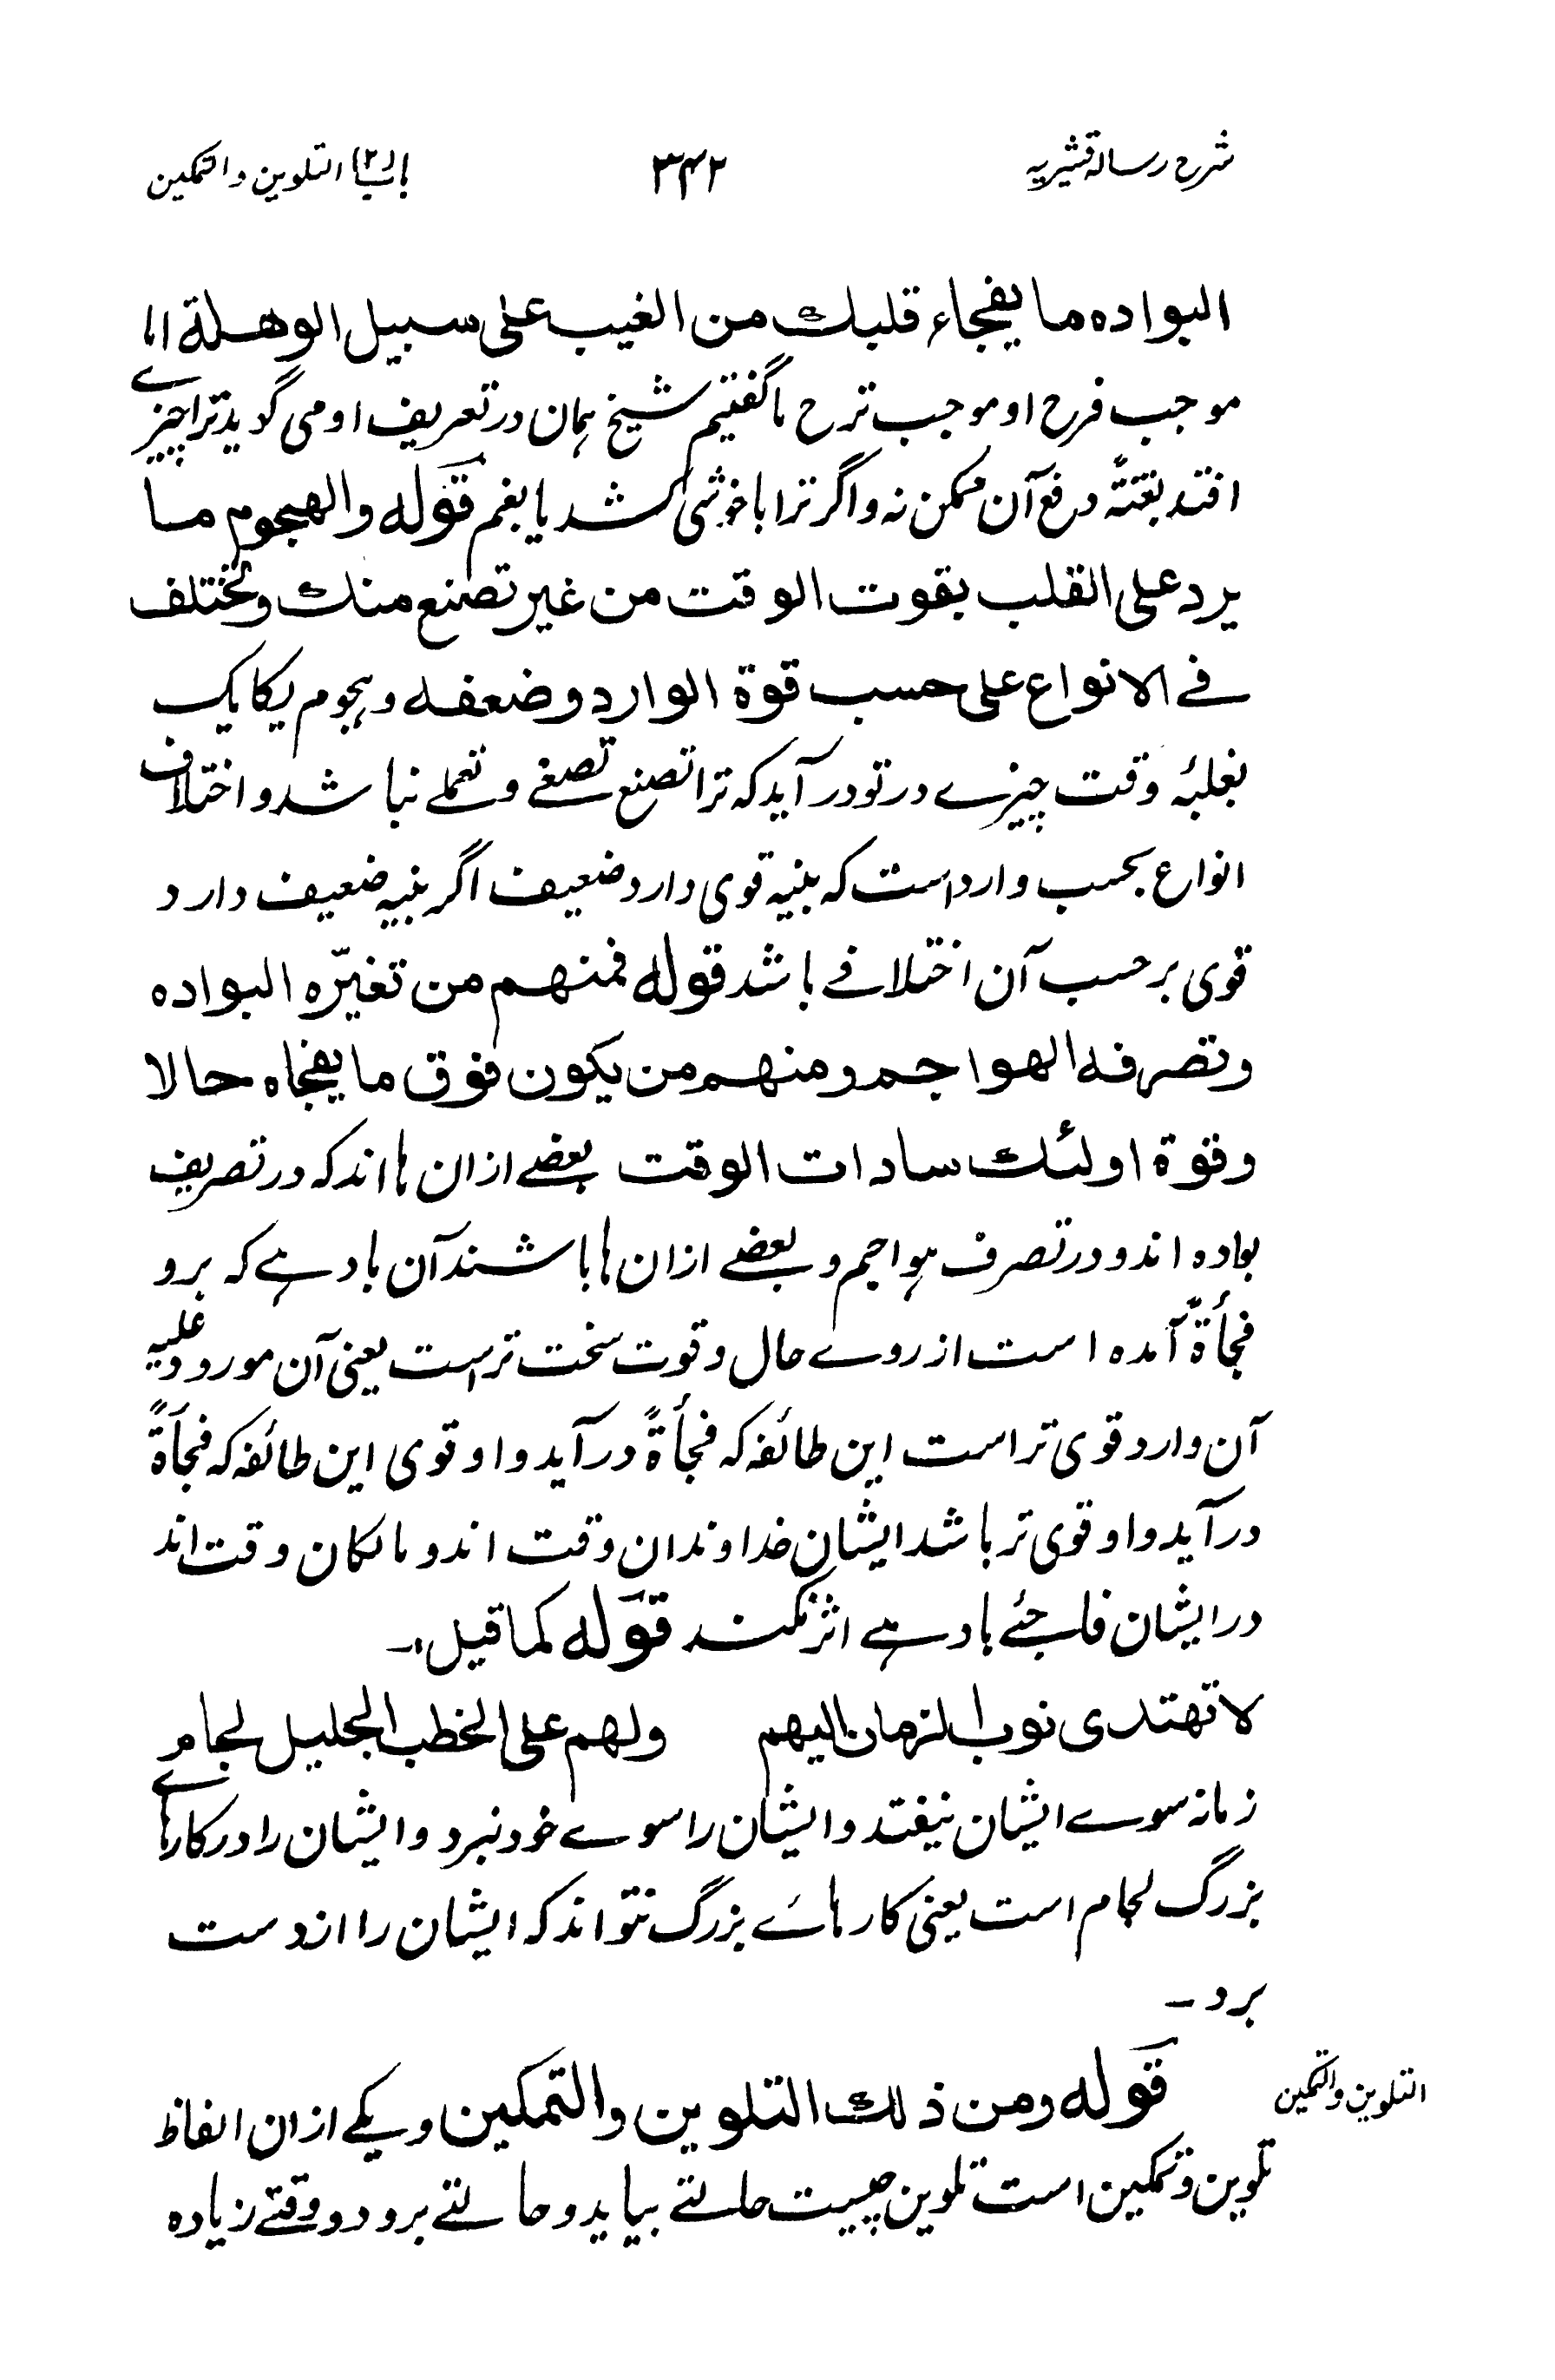 شرح رسالہ قشیریہ ۳۴۲ باب (۲) التلوین والتمکین
البوادہ ما یفجاء قلبك من الغیب علی سبیل الوهلة اما
موجب فرح او موجب ترح ما گفتیم شیخ ہمان در تعریف او می گوید ترا چیزے
افتد بغتةً دفع آن ممکن نہ و اگر ترا با خوشی کشد یا بغم قوله والهجوم ما
یرد علی القلب بقوت الوقت من غیر تصنع منك وتختلف
فے الانواع علی حسب قوة الوارد وضعفه و ہجوم یکایک
بغلبۂ وقت چیزے در تو در آید کہ ترا تصنع تصنعے و تعملے نباشد و اختلاف
انواع بحسب وارد است کہ بنیہ قوی دارد ضعیف اگر بنیہ ضعیف دارد
قوی بر حسب آن اختلافے باشد قوله فمنهم من تغیّره البواده
وتصرفه الهواجم ومنهم من یکون فوق ما یفجاه حالا
وقوة اولئك سادات الوقت بعضے ازان ہا اند کہ در تصریف
بوادہ اند و در تصرف ہواجم و بعضے ازان ہا باشند آن بادہے کہ برو
فجأةً آمده است از روے حال و قوت سخت تر است یعنی آن مورود علیہ
آن وارد قوی تر است این طائفہ کہ فجأةً در آید و او قوی این طائفہ کہ فجأةً
در آید و او قوی تر باشد ایشان خداوندان وقت اند و مالکان وقت اند
در ایشان فاجئے بادہے اثر نکند قوله کما قیل ؛۔
لا تهتدی نوب الزمان الیهم ولهم علی الخطب الجلیل لجام
زمانہ سوے ایشان نیفتد و ایشان را سوے خود نبرد و ایشان را در کارہاے
بزرگ لجام است یعنی کارہاے بزرگ نتواند کہ ایشان را از دست
برد ۔
التلوین والتمکین
قوله ومن ذلك التلوین والتمکین و یکے ازان الفاظ
تلوین و تمکین است تلوین چیست حالتے بیاید و حالتے برود و وقتے زیادہ